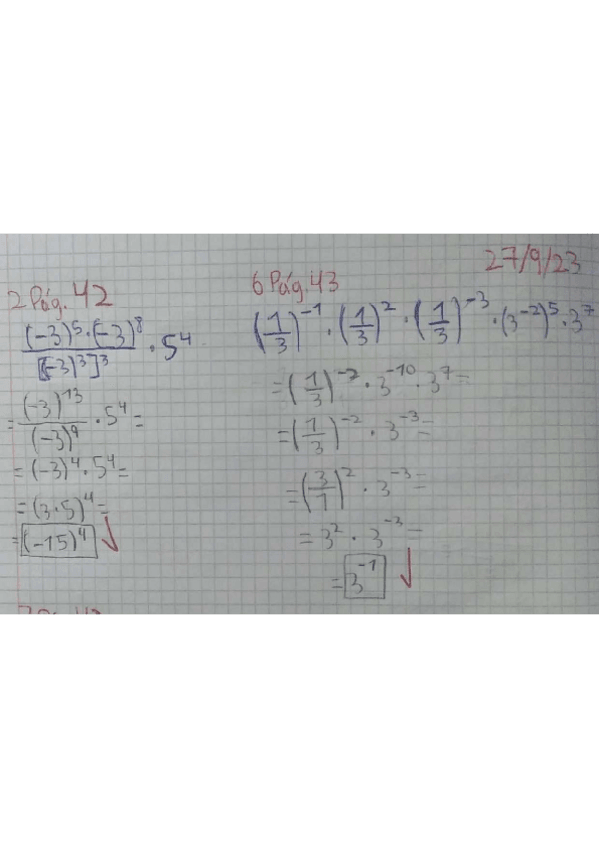 27/9/23
2 Pág. 42
(-3)^5 · (-3)^8 / [(-3)^3]^3 · 5^4
= (-3)^13 / (-3)^9 · 5^4 =
= (-3)^4 · 5^4 =
= (3 · 5)^4 =
= (-15)^4 ✓
6 Pág. 43
(1/3)^-1 · (1/3)^2 · (1/3)^-3 · (3^-2)^5 · 3^7
= (1/3)^-2 · 3^-10 · 3^7 =
= (1/3)^-2 · 3^-3 =
= (3/1)^2 · 3^-3 =
= 3^2 · 3^-3 =
= 3^-1 ✓